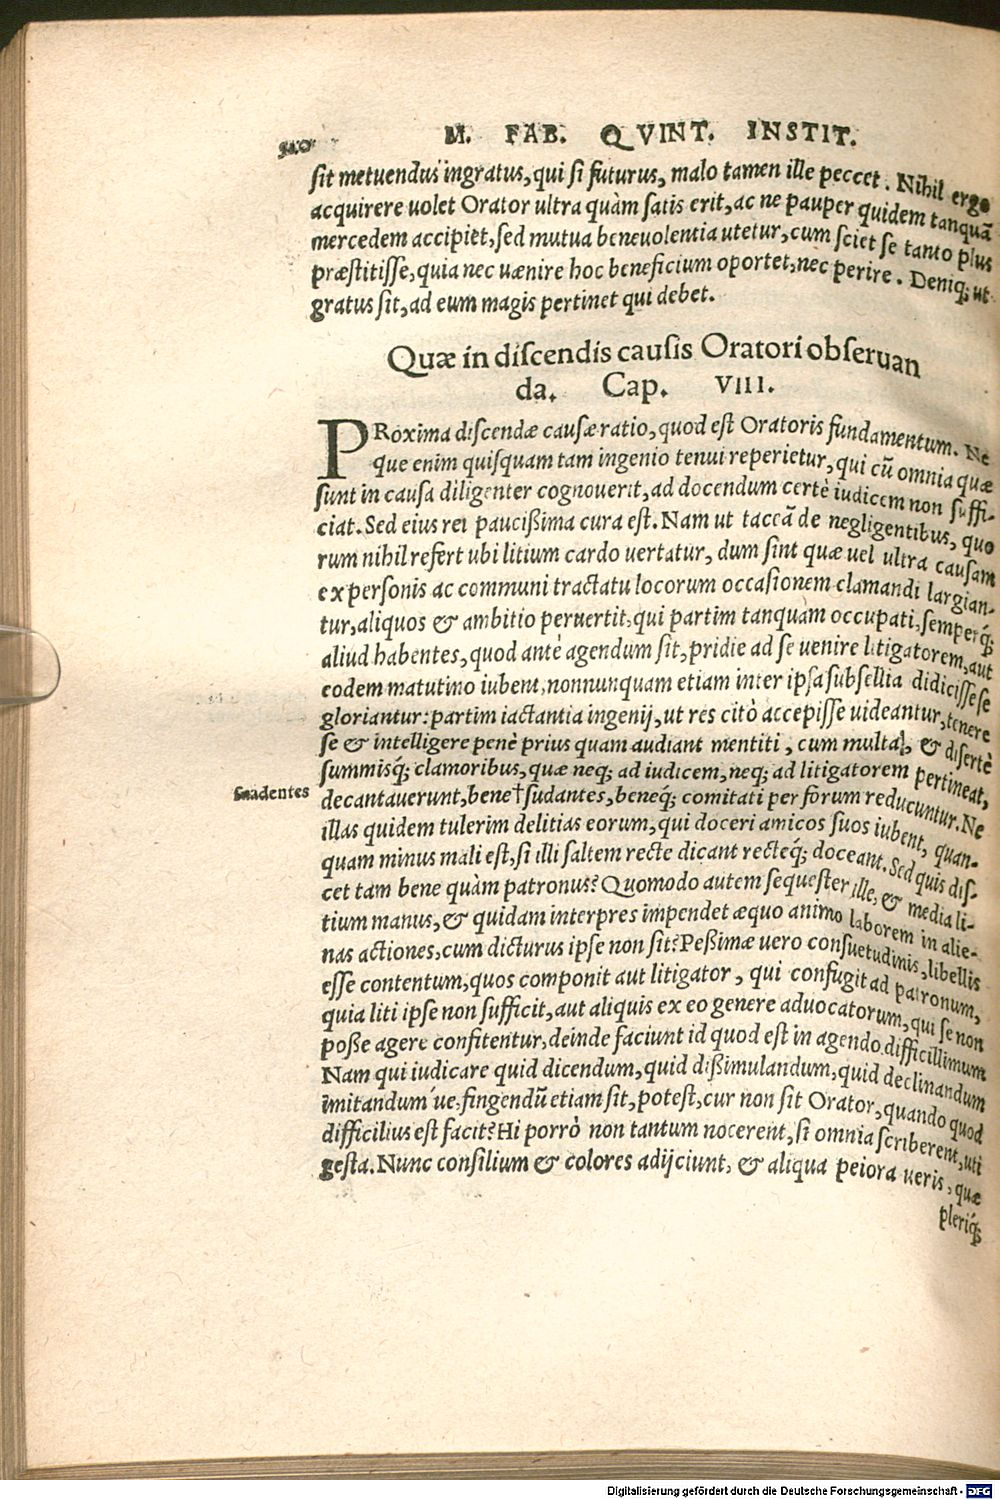 M. FAB. QVINT. INSTIT.
sit metuendus ingratus, qui si futurus, malo tamen ille peccet. Nihil ergo
acquirere uolet Orator ultra quàm satis erit, ac ne pauper quidem tanquã
mercedem accipiet, sed mutua beneuolentia utetur, cum sciet se tanto plus
præstitisse, quia nec uænire hoc beneficium oportet, nec perire. Deniq; ut
gratus sit, ad eum magis pertinet qui debet.
Quæ in discendis causis Oratori obseruan
da. Cap. VIII.
PRoxima discendæ causæ ratio, quod est Oratoris fundamentum. Ne
que enim quisquam tam ingenio tenui reperietur, qui cũ omnia quæ
sunt in causa diligenter cognouerit, ad docendum certè iudicem non suffi-
ciat. Sed eius rei paucißima cura est. Nam ut taceã de negligentibus, quo
rum nihil refert ubi litium cardo uertatur, dum sint quæ uel ultra causam
ex personis ac communi tractatu locorum occasionem clamandi largian-
tur, aliquos & ambitio peruertit, qui partim tanquam occupati, semperq́;
aliud habentes, quod antè agendum sit, pridie ad se uenire litigatorem, aut
eodem matutino iubent, nonnunquam etiam inter ipsa subsellia didicisse se
gloriantur: partim iactantia ingenij, ut res citò accepisse uideantur, tenere
se & intelligere penè prius quam audiant mentiti, cum multa, & disertè
summisq́; clamoribus, quæ neq; ad iudicem, neq; ad litigatorem pertineat,
Suadentes
decantauerunt, bene † sudantes, beneq́; comitati per forum reducuntur. Ne
illas quidem tulerim delitias eorum, qui doceri amicos suos iubent, quan-
quam minus mali est, si illi saltem recte dicant recteq́; doceant. Sed quis dis-
cet tam bene quàm patronus? Quomodo autem sequester ille, & media li-
tium manus, & quidam interpres impendet æquo animo laborem in alie-
nas actiones, cum dicturus ipse non sit? Peßimæ uero consuetudinis, libellis
esse contentum, quos componit aut litigator, qui confugit ad patronum,
quia liti ipse non sufficit, aut aliquis ex eo genere aduocatorum, qui se non
poße agere confitentur, deinde faciunt id quod est in agendo difficillimum
Nam qui iudicare quid dicendum, quid dißimulandum, quid declinandum
imitandum úe, fingendũ etiam sit, potest, cur non sit Orator, quando quod
difficilius est facit? Hi porrò non tantum nocerent, si omnia scriberent, uti
gesta. Nunc consilium & colores adijciunt, & aliqua peiora ueris, quæ
pleriq́;
Digitalisierung gefördert durch die Deutsche Forschungsgemeinschaft - DFG